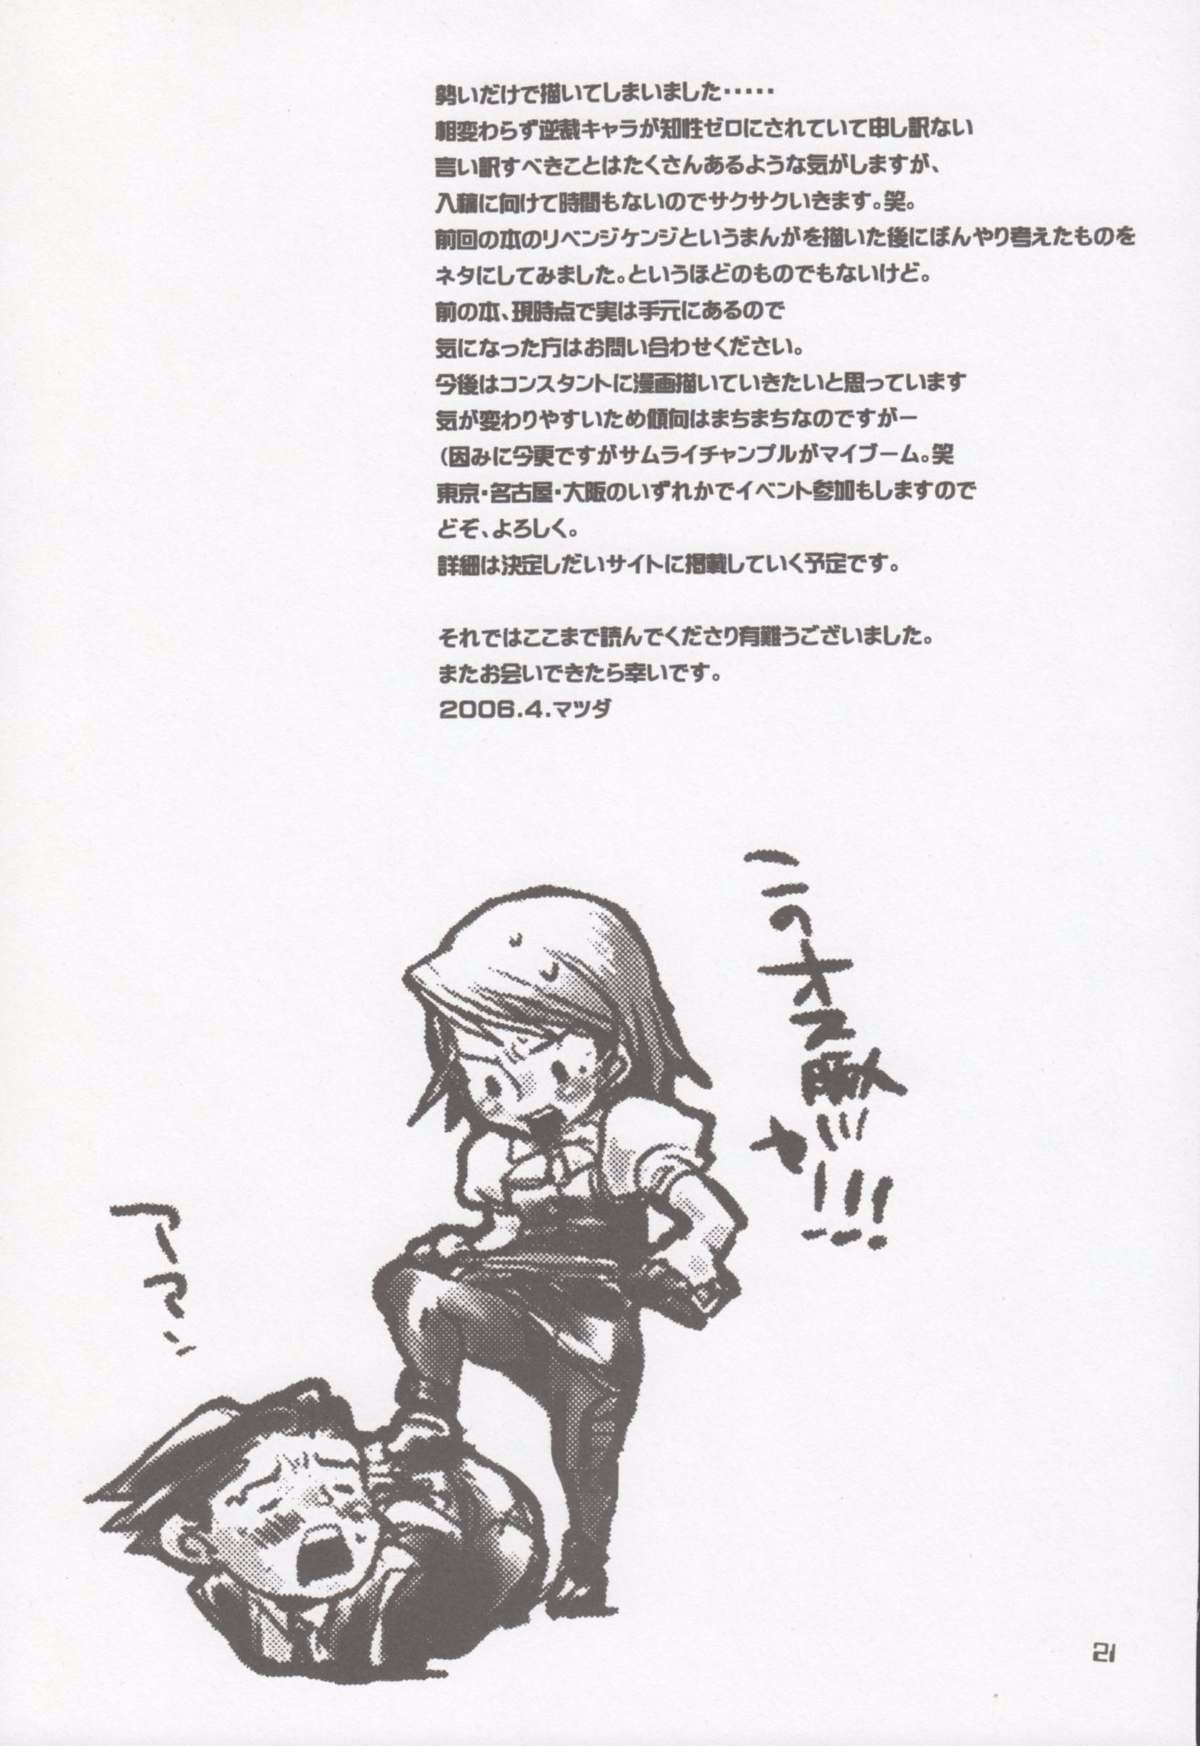 勢いだけで描いてしまいました・・・・・
相変わらず逆裁キャラが知性ゼロにされていて申し訳ない
言い訳すべきことはたくさんあるような気がしますが、
入稿に向けて時間もないのでサクサクいきます。笑。
前回の本のリベンジケンジというまんがを描いた後にぼんやり考えたものを
ネタにしてみました。というほどのものでもないけど。
前の本、現時点で実は手元にあるので
気になった方はお問い合わせください。
今後はコンスタントに漫画描いていきたいと思っています
気が変わりやすいため傾向はまちまちなのですがー
(因みに今更ですがサムライチャンプルがマイブーム。笑
東京・名古屋・大阪のいずれかでイベント参加もしますので
どぞ、よろしく。
詳細は決定しだいサイトに掲載していく予定です。
それではここまで読んでくださり有難うございました。
またお会いできたら幸いです。
2006.4.マツダ
この
アーマン
21